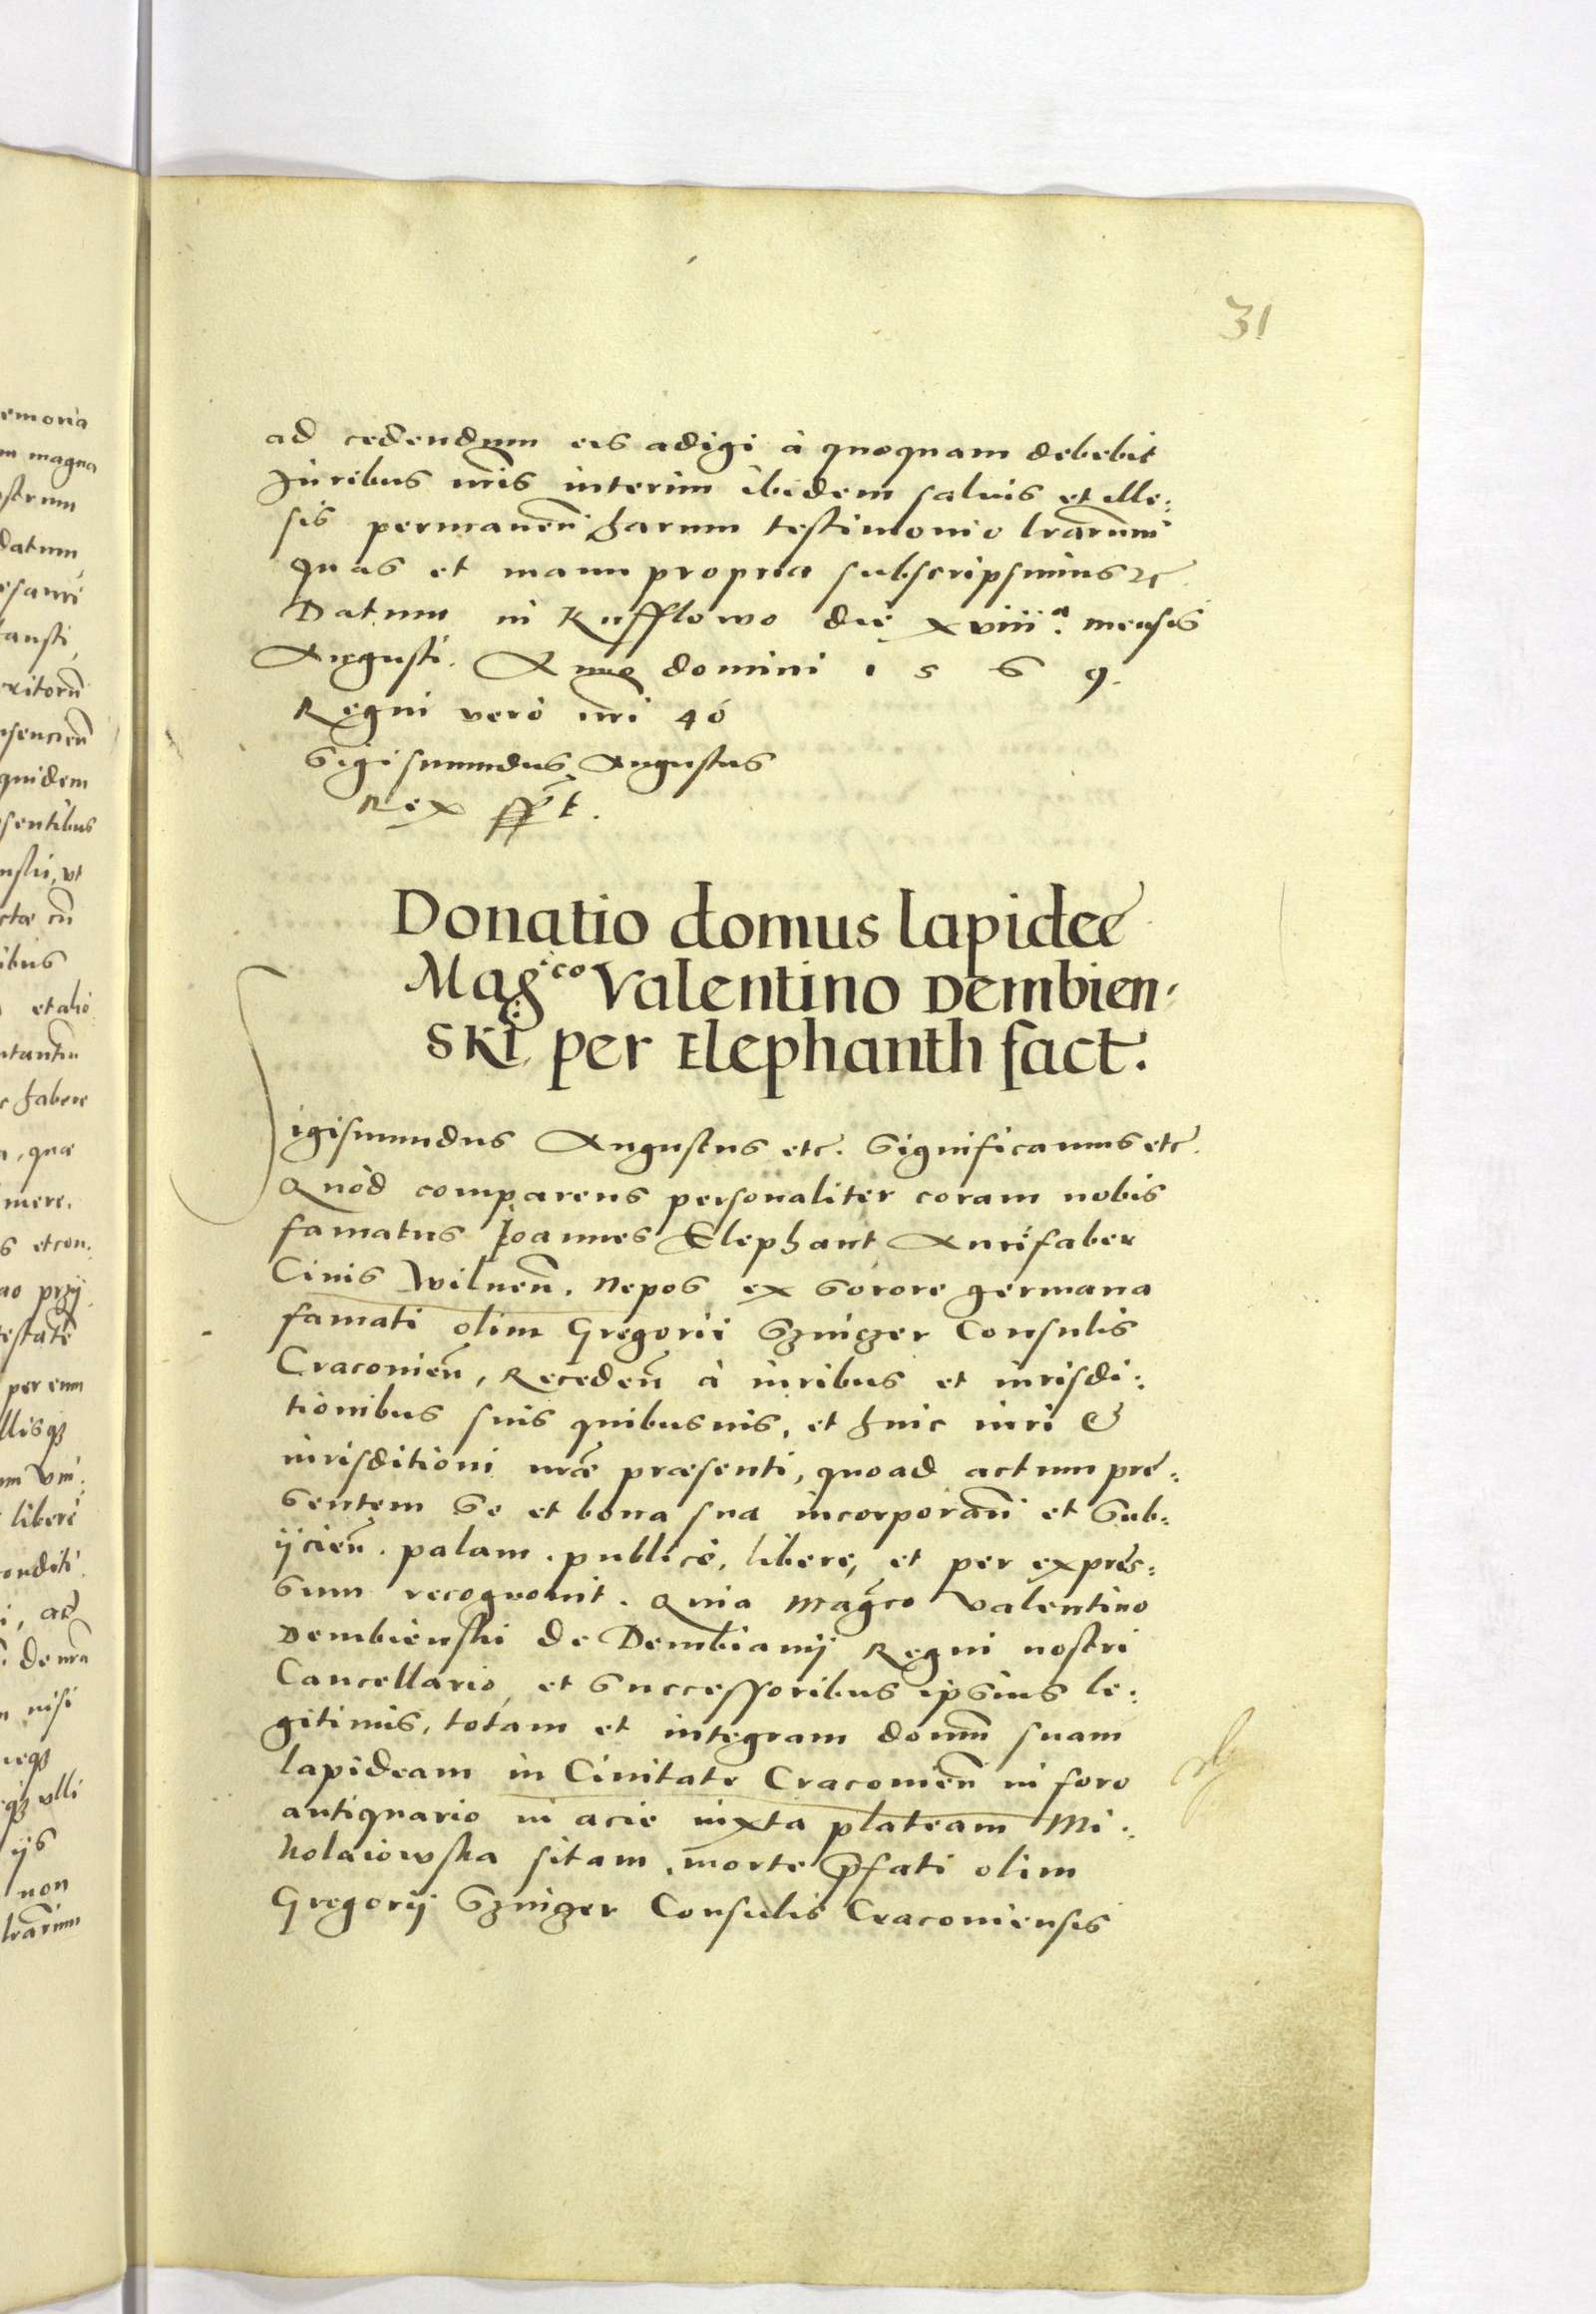 31
ad cedendum eis adigi à quoquam debebit
Juribus nr̃is interim ibidem saluis et ille:
sis permanen̄ harum testimonio lr̃arum
quas et manu propria subscripsimus etc
Datum in Kufflowo die xviiij.ª mensis
Augusti. Anno domini 1 5 6 9.
Regni vero nr̃i 40
Sigismundus Augustus
Rex sspt.
Donatio domus lapidee
Mag.co Valentino Dembien-
ski per Elephanth fact.
Sigismundus Augustus etc. Significamus etc.
Quòd comparens personaliter coram nobis
famatus Joannes Elephant Aurifaber
Ciuis Wilnen̄. Nepos ex Sorore germana
famati olim Gregorii Szniczer Consulis
Craconien̄, Receden̄ à iuribus et iurisdi:
tionibus suis quibusuis, et huic iuri &
iurisditioni nr̃æ præsenti, quoad actum præ:
sentem Se et bona sua incorporan̄ et Sub:
ijcien̄. palam. publicè, liberè, et per expres:
sum recognouit. Quia Mag̃co Valentino
Dembienski de Dembianij Regni nostri
Cancellario, et Successoribus ipsius le:
gitimis, totam et integram domũ suam
lapideam in Ciuitate Cracouien̄ in foro
antiquario in acie iuxta plateam Mi:
kolaiowska sitam, morte p̃fati olim
Gregorij Szniczer Consulis Cracouiensis
emoria
m magna
strum
datum
esauri
fausti,
ritorũ
quidem
sentibus
ibus
et alio
habere
, quæ
mere.
s et con:
per eum
llisqȝ
liberè
onditi
i, ac
nisi
ulli
ijs
non
lr̃arum